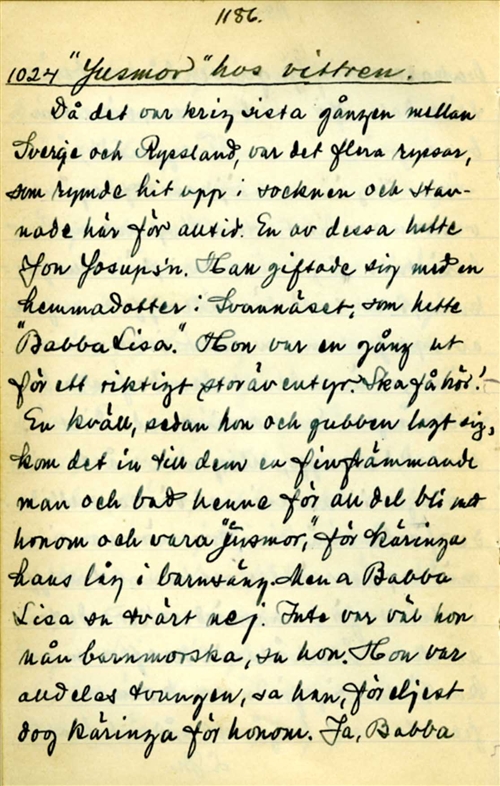 1186.
1024 "Jusmor" hos vittren.
Då det var krig sista gången mellan
Sverge och Ryssland, var det flera ryssar,
som rymde hit upp i socknen och stan-
nade här för alltid. En av dessa hette
Jon Josups'n. Han giftade sig med en
hemmadotter i Svannäset, som hette
"Babba Lisa." Hon var en gång ut
för ett riktigt storäventyr. Ska få hör!
En kväll, sedan hon och gubben lagt sig,
kom det in till dem en finfrämmande
man och bad henne för all del bli mä
honom och vara "jusmor," för käringa
hans låg i barnsäng. Men a Babba
Lisa sa tvärt nej. Inte var väl hon
nån barnmorska, sa hon. Hon var
alldeles tvungen, sa han, för eljest
dog käringa för honom. Ja, Babba